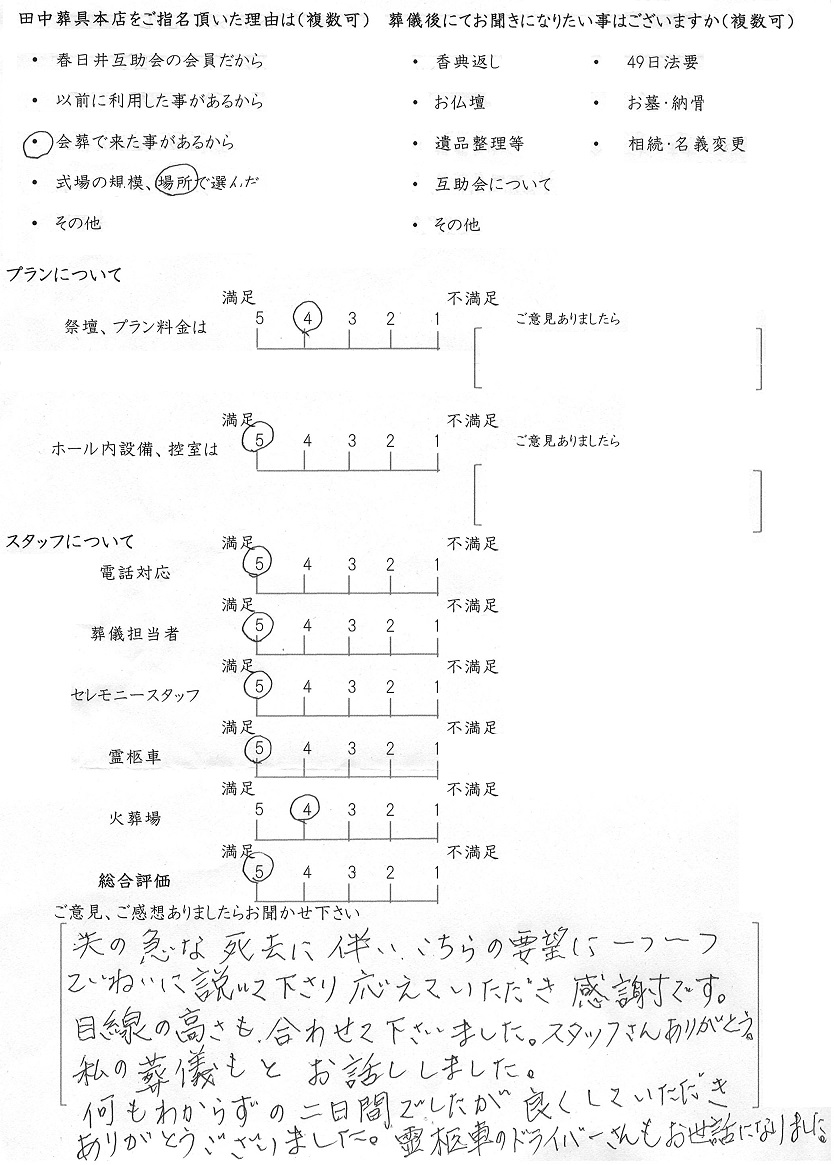 田中葬具本店をご指名頂いた理由は(複数可) 葬儀後にてお聞きになりたい事はございますか(複数可)
・ 春日井互助会の会員だから ・ 香典返し ・ 49日法要
・ 以前に利用した事があるから ・ お仏壇 ・ お墓・納骨
・ 会葬で来た事があるから ・ 遺品整理等 ・ 相続・名義変更
・ 式場の規模、場所で選んだ ・ 互助会について
・ その他 ・ その他
プランについて
満足 不満足
祭壇、プラン料金は 5 4 3 2 1 ご意見ありましたら
満足 不満足
ホール内設備、控室は 5 4 3 2 1 ご意見ありましたら
スタッフについて 満足 不満足
電話対応 5 4 3 2 1
満足 不満足
葬儀担当者 5 4 3 2 1
満足 不満足
セレモニースタッフ 5 4 3 2 1
満足 不満足
霊柩車 5 4 3 2 1
満足 不満足
火葬場 5 4 3 2 1
満足 不満足
総合評価 5 4 3 2 1
ご意見、ご感想ありましたらお聞かせ下さい
夫の急な死去に伴い、こちらの要望に一つ一つ
ていねいに説いて下さり応えていただき感謝です。
目線の高さも、合わせて下さいました。スタッフさんありがとう。
私の葬儀もと お話ししました。
何もわからずの二日間でしたが良くしていただき
ありがとうございました。霊柩車のドライバーさんもお世話になりました。